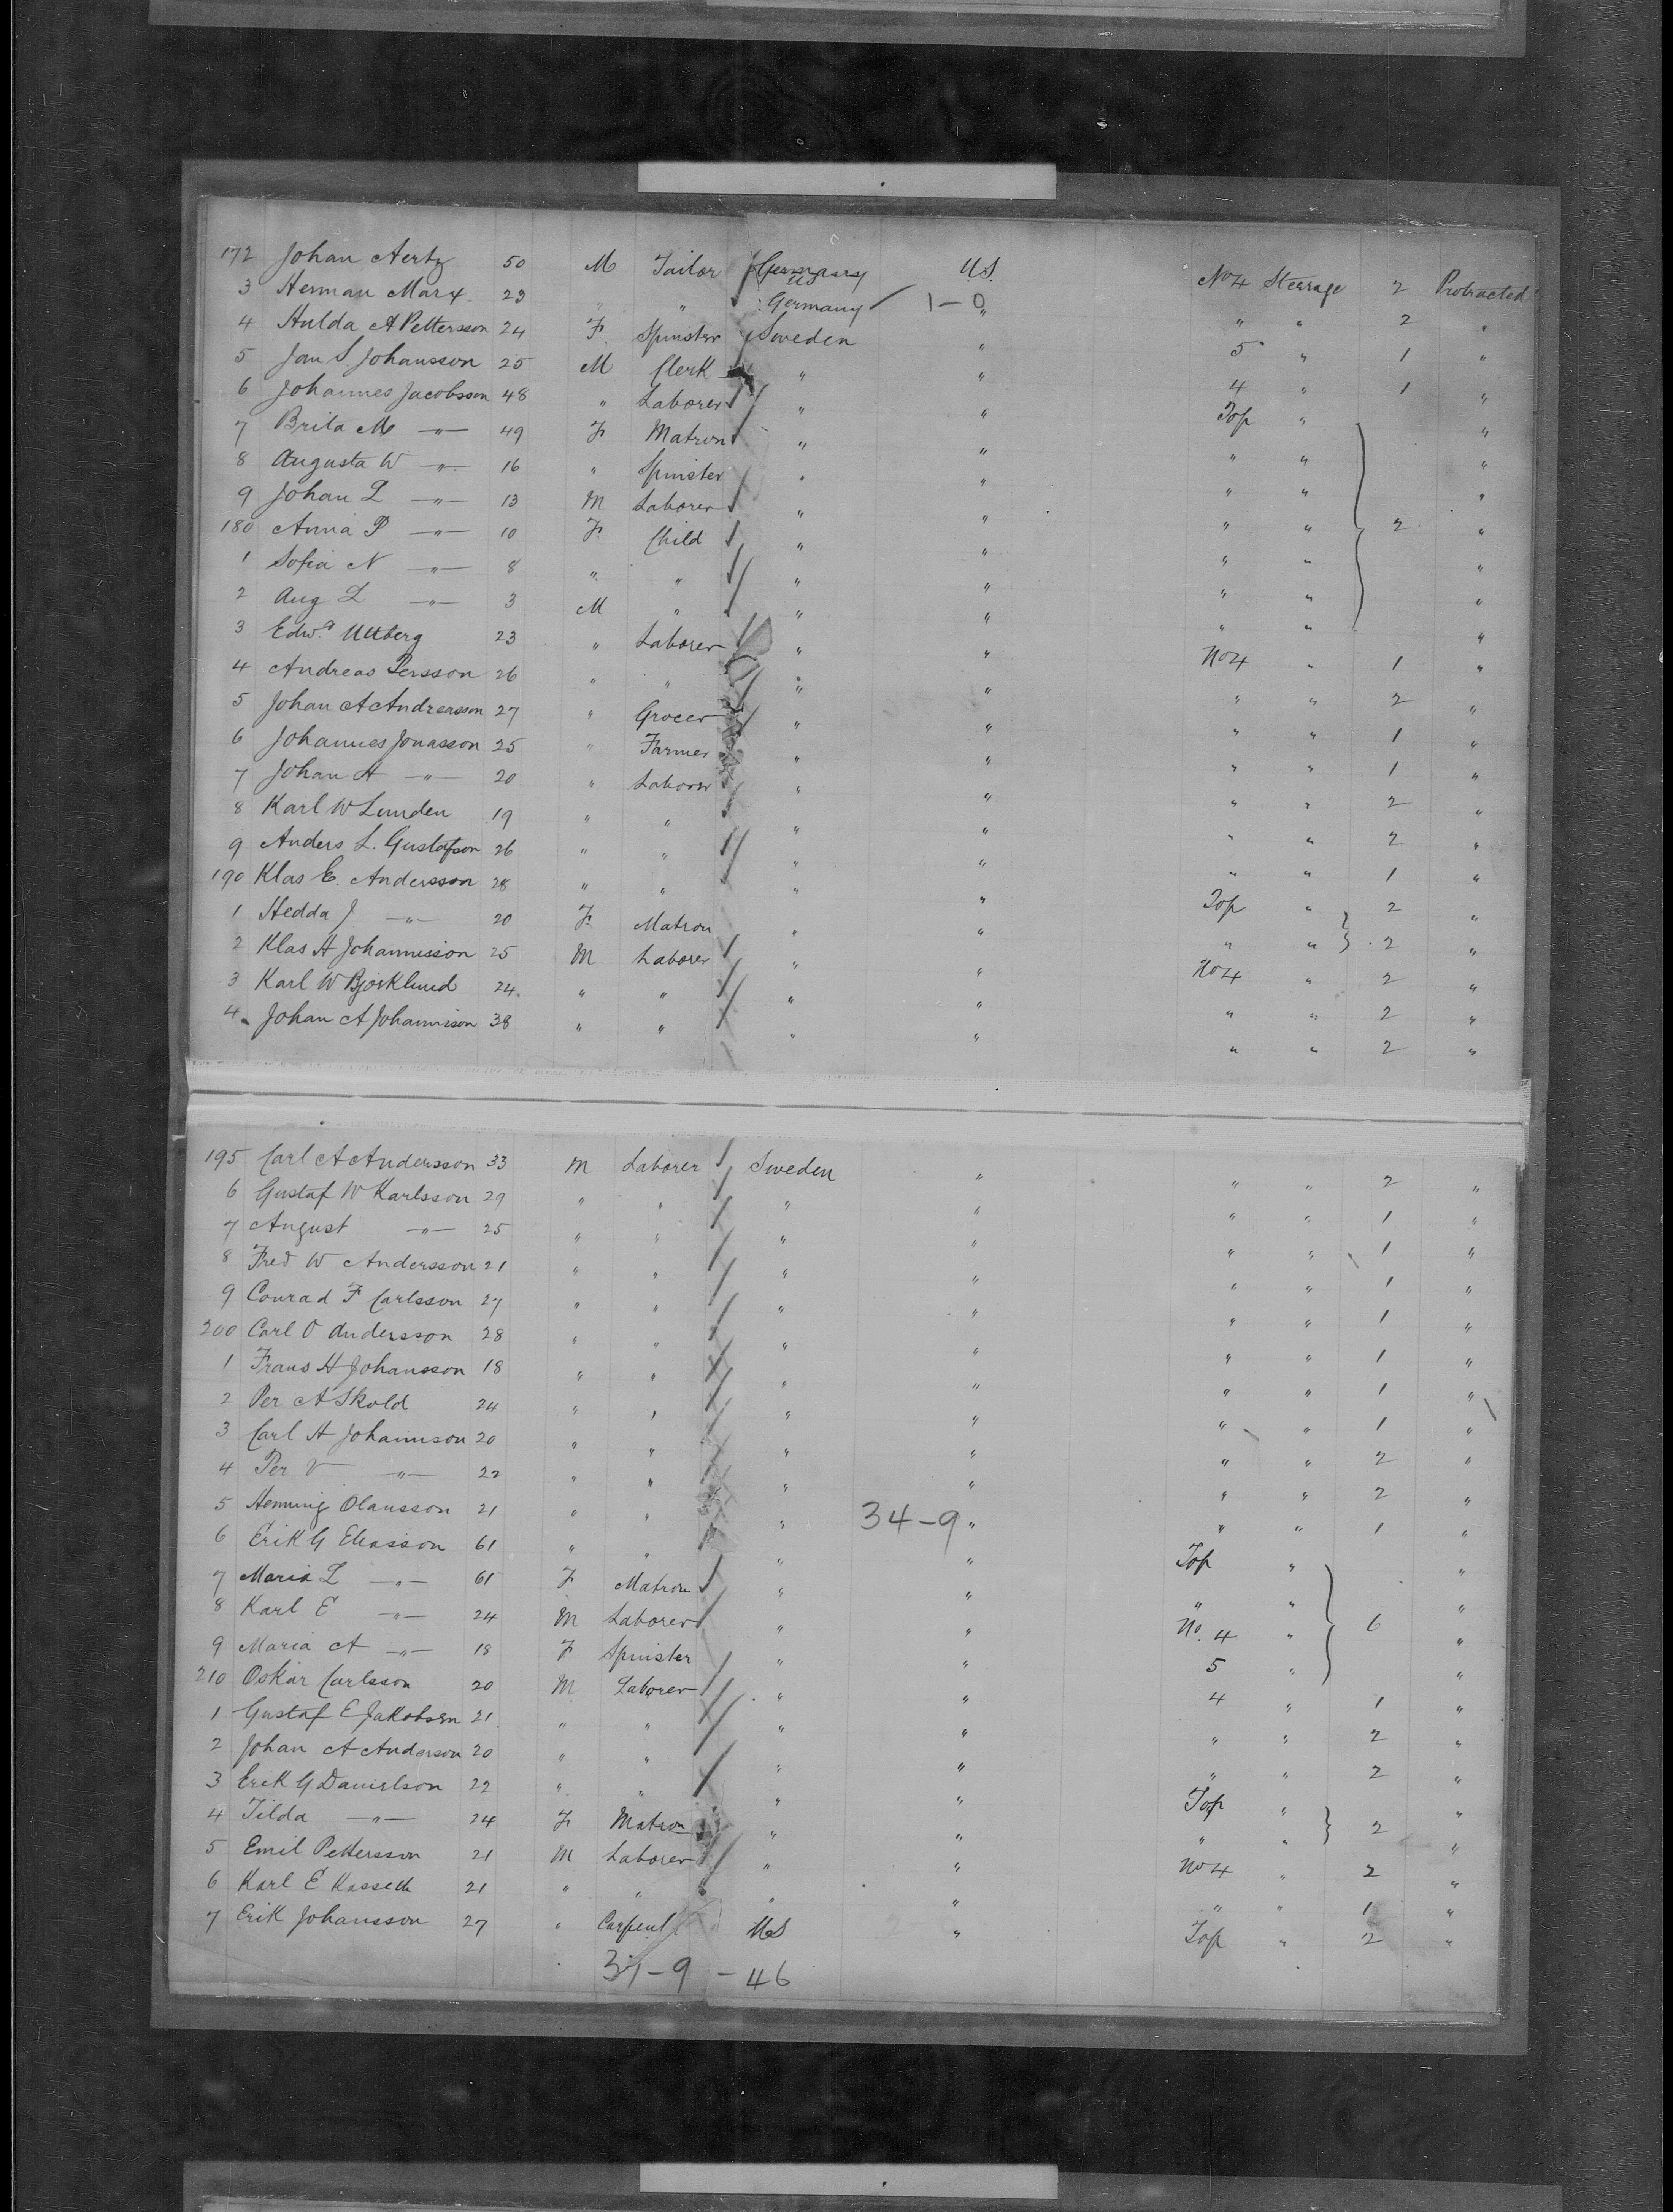 172 Johan Aertz 50 M Tailor Germany US U.S. No 4 Steerage 2 Protracted
3 Herman Marx 23 " " Germany 1-0 " " " 2 "
4 Hulda A Pettersson 24 F. Spinster Sweden " 5 " 1 "
5 Jan S Johansson 25 M Clerk " " 4 " 1 "
6 Johannes Jacobsson 48 " Laborer " " Top " "
7 Brita M —"— 49 F Matron " " " " "
8 Augusta W —"— 16 " Spinster " " " " "
9 Johan L —"— 13 M Laborer " " " " 2 "
180 Anna P —"— 10 F. Child " " " " "
1 Sofia N —"— 8 " " " " " " "
2 Aug L —"— 3 M " " " " " "
3 Edwd 23 " Laborer " " No 4 " 1 "
4 Andreas Persson 26 " " " " " " 2 "
5 Johan A Andreasson 27 " Grocer " " " " 1 "
6 Johannes Jonasson 25 " Farmer " " " " 1 "
7 Johan A —"— 20 " Laborer " " " " 2 "
8 Karl W Lunden 19 " " " " " " 2 "
9 Anders L. Gustafson 26 " " " " " " 1 "
190 Klas E. Andersson 28 " " " " Top " 2 "
1 Hedda J —"— 20 F. Matron " " " " 2 "
2 Klas A Johannisson 25 M Laborer " " No 4 " 2 "
3 Karl W Bjorklund 24 " " " " " " 2 "
4 Johan A Johannison 38 " " " " " " 2 "
195 Carl A Andersson 33 M Laborer Sweden " " " 2 "
6 Gustaf W Karlsson 29 " " " " " " 1 "
7 August —"— 25 " " " " " " 1 "
8 Fred W Andersson 21 " " " " " " 1 "
9 Conrad F Carlsson 27 " " " " " " 1 "
200 Carl O Andersson 28 " " " " " " 1 "
1 Frans H Johansson 18 " " " " " " 1 "
2 Per A Skold 24 " " " " " " 1 "
3 Carl A Johannson 20 " " " " " " 2 "
4 Per V —"— 22 " " " " " " 2 "
5 Henning Olausson 21 " " " 34-9 " " " 1 "
6 Erik G Eliasson 61 " " " " Top " "
7 Maria L —"— 61 F Matron " " " " "
8 Karl E —"— 24 M Laborer " " No. 4 " 6 "
9 Maria A —"— 18 F Spinster " " 5 " "
210 Oskar Carlsson 20 M Laborer " " 4 " 1 "
1 Gustaf E Jakobsen 21 " " " " " " 2 "
2 Johan A Anderson 20 " " " " " " 2 "
3 Erik G Danielson 22 " " " " Top " "
4 Tilda —"— 24 F Matron " " " " 2 "
5 Emil Pettersson 21 M Laborer " " No 4 " 2 "
6 Karl E 21 " " " " " " 1 "
7 Erik Johansson 27 " Carpent US " Top " 2 "
-9 - 46